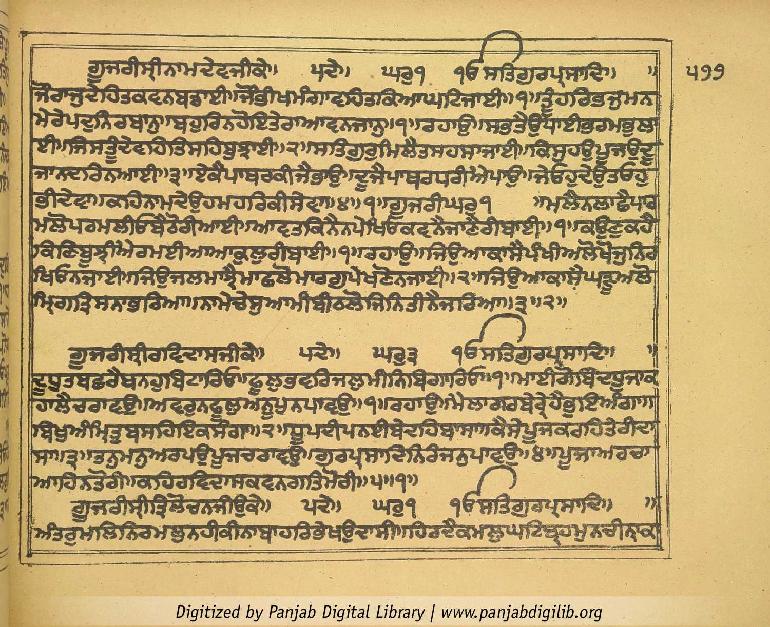 ਗੂਜਰੀਸ੍ਰੀਨਾਮਦੇਵਜੀਕੇ॥ ਪਦੇ॥ ਘਰੁ੧ ੴਸਤਿਗੁਰਪ੍ਰਸਾਦਿ॥ ॥ ੫੧੧
ਜੌਰਾਜੁਦੇਹਿਤਕਵਨਬਡਾਈ॥ਜੌਭੀਖਮੰਗਾਵਹਿਤਕਿਆਘਟਿਜਾਈ॥੧॥ਤੂੰਹਰਿਭਜੁਮਨ
ਮੇਰੇਪਦੁਨਿਰਬਾਨੁ॥ਬਹੁਰਿਨਹੋਇਤੇਰਾਆਵਨਜਾਨੁ॥੧॥ਰਹਾਉ॥ਸਭਤੈਉਪਾਈਭਰਮਭੁਲਾ
ਈ॥ਜਿਸਤੂੰਦੇਵਹਿਤਿਸਹਿਬੁਝਾਈ॥੨॥ਸਤਿਗੁਰੁਮਿਲੈਤਸਹਸਾਜਾਈ॥ਕਿਸੁਹਉਪੂਜਉਦੂ
ਜਾਨਦਰਿਨਆਈ॥੩॥ਏਕੈਪਾਥਰਕੀਜੈਭਾਉ॥ਦੂਜੈਪਾਥਰਧਰੀਐਪਾਉ॥ਜੇਓਹੁਦੇਉਤਓਹੁ
ਭੀਦੇਵਾ॥ਕਹਿਨਾਮਦੇਉਹਮਹਰਿਕੀਸੇਵਾ॥੪॥੧॥ਗੂਜਰੀਘਰੁ੧ ॥ਮਲੈਨਲਾਛੈਪਾਰ
ਮਲੋਪਰਮਲੀਓਬੈਠੋਰੀਆਈ॥ਆਵਤਕਿਨੈਨਪੇਖਿਓਕਵਨੈਜਾਣੈਰੀਬਾਈ॥੧॥ਕਉਣੁਕਹੈ
ਕਿਣਿਬੂਝੀਐਰਮਈਆਆਕੁਲੁਰੀਬਾਈ॥੧॥ਰਹਾਉ॥ਜਿਉਆਕਾਸੈਪੰਖੀਅਲੋਖੋਜੁਨਿਰ
ਖਿਓਨਜਾਈ॥ਜਿਉਜਲਮਾਝੈਮਾਛਲੋਮਾਰਗੁਪੇਖਣੋਨਜਾਈ॥੨॥ਜਿਉਆਕਾਸੈਘੜੂਅਲੋ
ਮ੍ਰਿਗਤ੍ਰਿਸਨਾਭਰਿਆ॥ਨਾਮੇਚੇਸੁਆਮੀਬੀਠਲੋਜਿਨਿਤੀਨੈਜਰਿਆ॥੩॥੨॥
ਗੂਜਰੀਸ੍ਰੀਰਵਿਦਾਸਜੀਕੇ॥ ਪਦੇ॥ ਘਰੁ੩ ੴਸਤਿਗੁਰਪ੍ਰਸਾਦਿ॥ ॥
ਦੂਧੁਤਬਛਰੈਥਨਹੁਬਿਟਾਰਿਓ॥ਫੂਲੁਭਵਰਿਜਲੁਮੀਨਿਬਿਗਾਰਿਓ॥੧॥ਮਾਈਗੋਬਿੰਦਪੂਜਾਕ
ਹਾਲੈਚਰਾਵਉ॥ਅਵਰੁਨਫੂਲੁਅਨੂਪੁਨਪਾਵਉ॥੧॥ਰਹਾਉ॥ਮੈਲਾਗਰਬੇਰ੍ਹੇਹੈਭੁਇਅੰਗਾ॥
ਬਿਖੁਅੰਮ੍ਰਿਤੁਬਸਹਿਇਕਸੰਗਾ॥੨॥ਧੂਪਦੀਪਨਈਬੇਦਹਿਬਾਸਾ॥ਕੈਸੇਪੂਜਕਰਹਿਤੇਰੀਦਾ
ਸਾ॥੩॥ਤਨੁਮਨੁਅਰਪਉਪੂਜਚਰਾਵਉ॥ਗੁਰਪ੍ਰਸਾਦਿਨਿਰੰਜਨੁਪਾਵਉ॥੪॥ਪੂਜਾਅਰਚਾ
ਆਹਿਨਤੋਰੀ॥ਕਹਿਰਵਿਦਾਸਕਵਨਗਤਿਮੋਰੀ॥੫॥੧॥
ਗੂਜਰੀਸ੍ਰੀਤ੍ਰਿਲੋਚਨਜੀਉਕੇ॥ ਪਦੇ॥ ਘਰੁ੧ ੴਸਤਿਗੁਰਪ੍ਰਸਾਦਿ॥ ॥
ਅੰਤਰੁਮਲਿਨਿਰਮਲੁਨਹੀਕੀਨਾਬਾਹਰਿਭੇਖਉਦਾਸੀ॥ਹਿਰਦੈਕਮਲੁਘਟਿਬ੍ਰਹਮੁਨਚੀਨ੍ਹਾਕ
Digitized by Panjab Digital Library | www.panjabdigilib.org